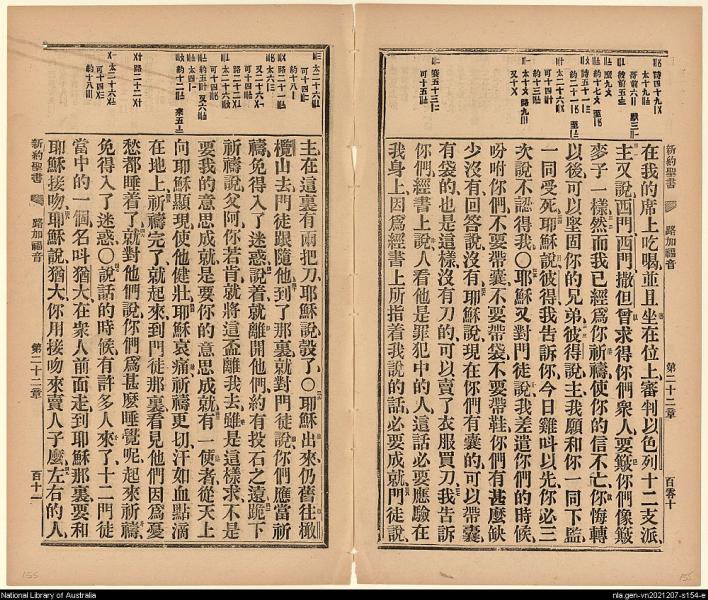 新約聖書
路加福音
第二十二章
百零十
在我的席上吃喝並且坐在位上審判以色列十二支派、
主又說西門西門撒但曾求得你們衆人要簸你們像簸
麥子一樣然而我已經爲你祈禱使你的信不亡你悔轉
以後可以堅固你的兄弟彼得說主我願和你一同下監、
一同受死耶穌說彼得我告訴你今日雞呌以先你必三
次說不認得我〇耶穌又對門徒說我差遣你們的時候
吩咐你們不要帶囊不要帶袋不要帶鞋你們有甚麽缺
少沒有回答說沒有耶穌說現在你們有囊的可以帶囊、
有袋的也是這樣沒有刀的可以賣了衣服買刀我告訴
你們經書上說人看他是罪犯中的人這話必要應驗在
我身上因爲經書上所指着我說的話必要成就門徒說、
主在這裏有兩把刀耶穌說彀了〇耶穌出來仍舊往橄
欖山去門徒跟隨他到了那裏就對門徒說你們應當祈
禱免得入了迷惑說着就離開他們約有投石之遠跪下
祈禱說父阿你若肯就將這盃離我去雖是這樣求不是
要我的意思成就是要你的意思成就有一使者從天上
向耶穌顯現使他健壯耶穌哀痛祈禱更切汗如血點滴
在地上祈禱完了就起來到門徒那裏看見他們因爲憂
愁都睡着了就對他們說你們爲甚麽睡覺呢起來祈禱
免得入了迷惑〇說話的時候有許多人來了十二門徒
當中的一個名呌猶大在衆人前面走到耶穌那裏要和
耶穌接吻耶穌說猶大你用接吻來賣人子麽左右的人、
新約聖書
路加福音
第二十二章
百十一
155
National Library of Australia
nla.gen-vn2021207-s154-e